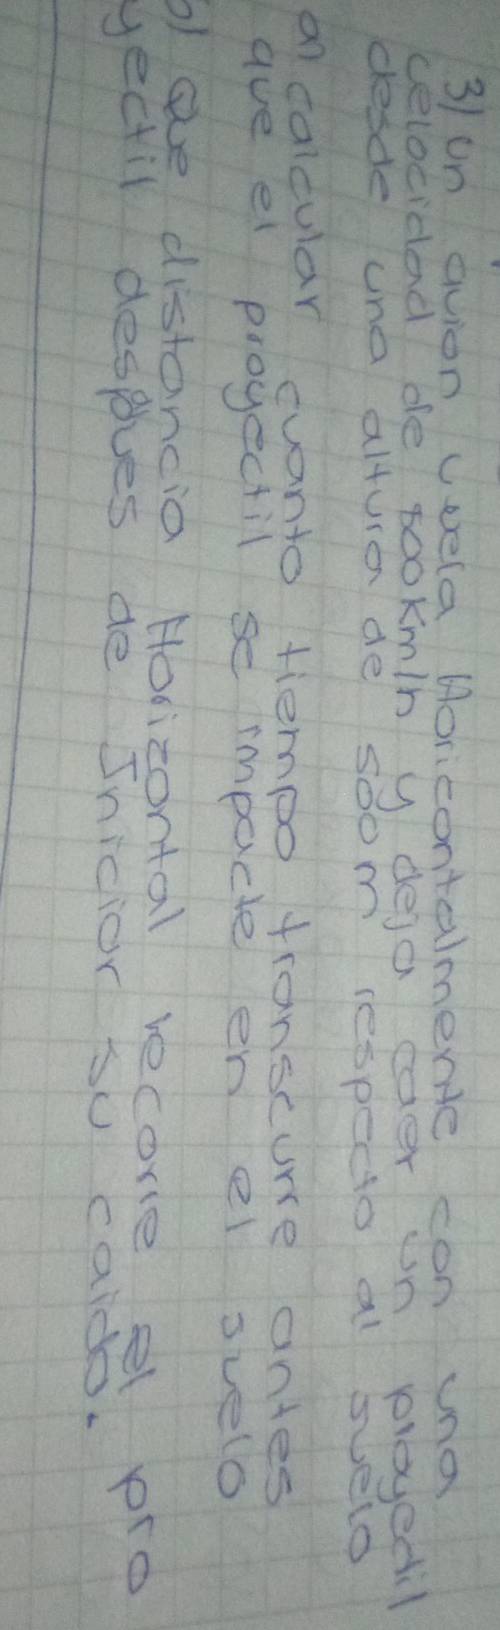 3) Un avion vuela Horizontalmente con una
velocidad de 800 Km/h y deja caer un proyectil
desde una altura de 500 m respecto al suelo
a) calcular cuanto tiempo transcurre antes
que el proyectil se impacte en el suelo
b) Que distancia Horizontal recorre el pro
yectil despues de Iniciar su caida.